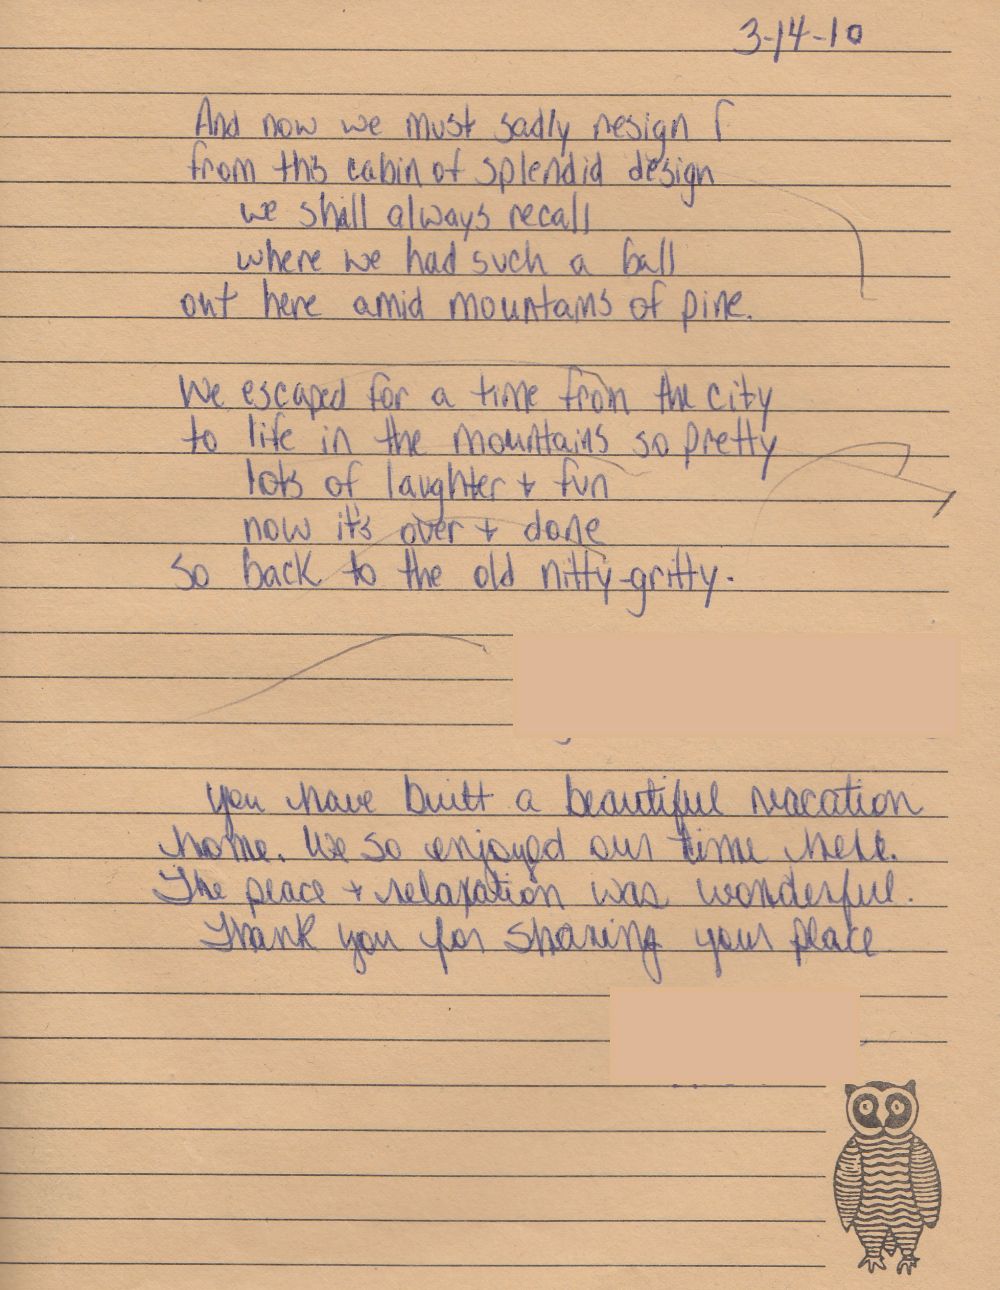 3-14-10
And now we must sadly resign
from this cabin of splendid design
we shall always recall
where we had such a ball
out here amid mountains of pine.
We escaped for a time from the city
to life in the mountains so pretty
lots of laughter + fun
now it's over + done
so back to the old nitty-gritty.
You have built a beautiful vacation
home. We so enjoyed our time here.
The peace + relaxation was wonderful.
Thank you for sharing your place